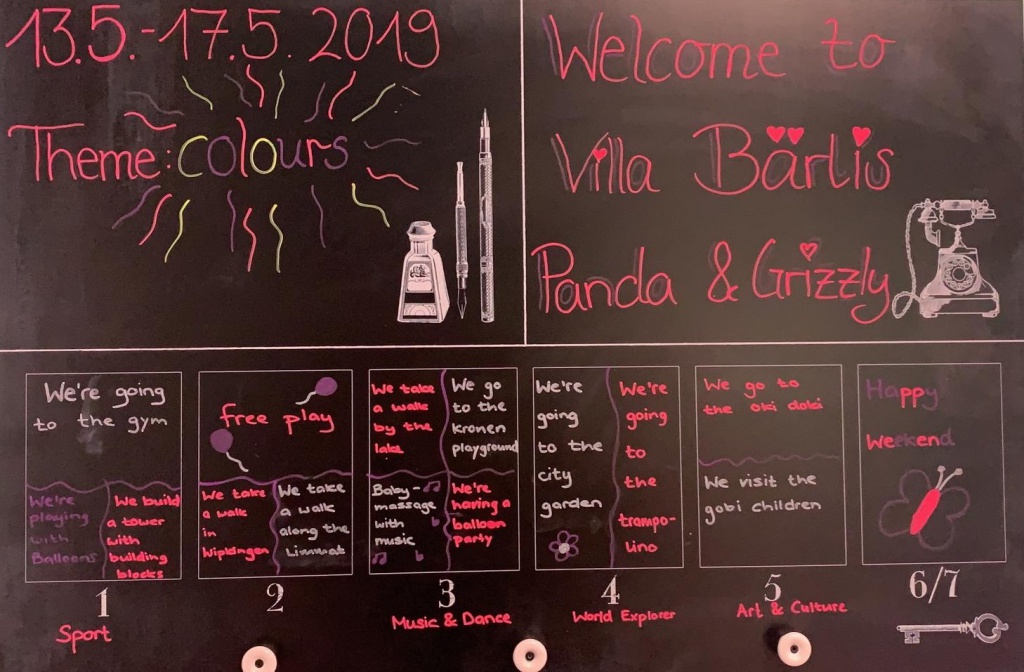 13.5.-17.5. 2019
Theme: colours
Welcome to
Villa Bärlis
Panda & Grizzly
We're going
to the gym
We're
playing
with
Balloons
We build
a tower
with
building
blocks
1
Sport
free play
We take
a walk
in
Wipkingen
We take
a walk
along the
Limmat
2
We take
a walk
by the
lake
We go
to the
kronen
playground
Baby-
massage
with
music
We're
having a
balloon
party
3
Music & Dance
We're
going
to the
city
garden
We're
going
to
the
trampo-
lino
4
World Explorer
We go to
the oki doki
We visit the
gobi children
5
Art & Culture
Happy
Weekend
6/7